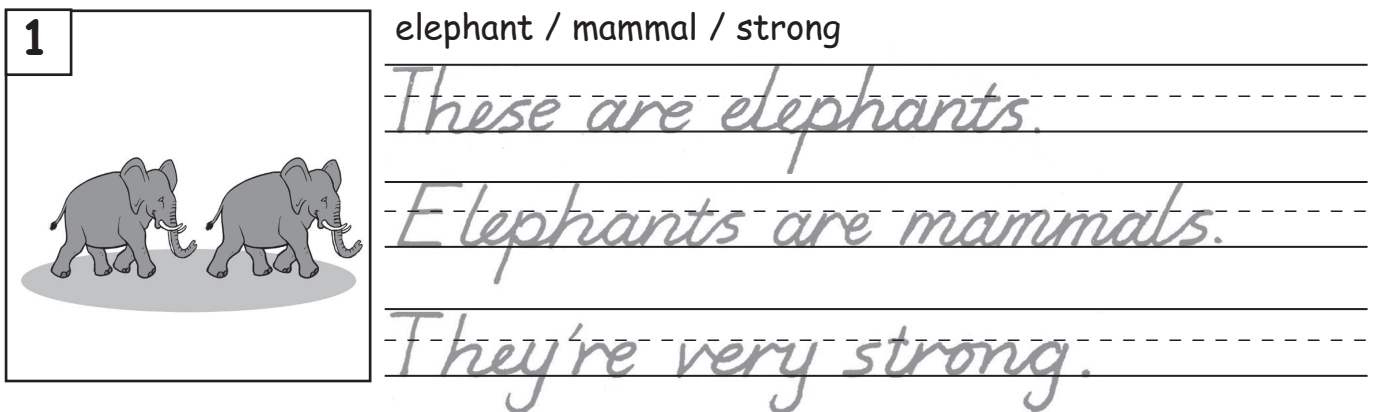 1
elephant / mammal / strong
These are elephants.
Elephants are mammals.
They're very strong.